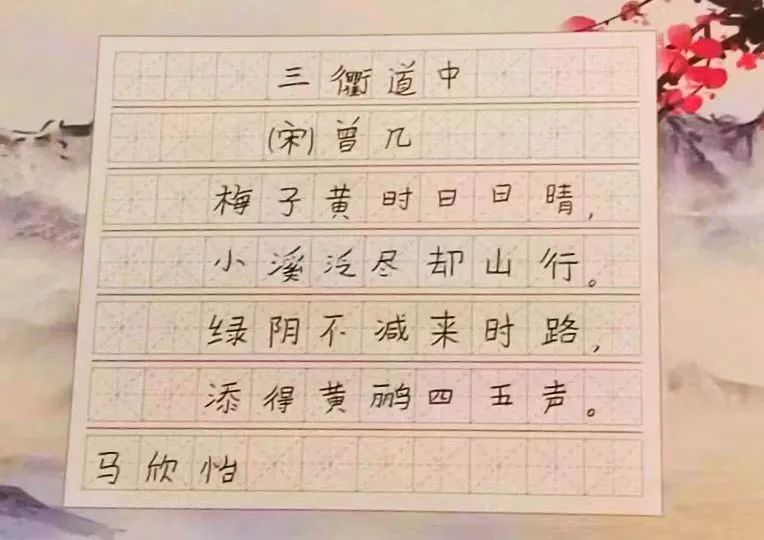 三衢道中
(宋)曾几
梅子黄时日日晴,
小溪泛尽却山行。
绿阴不减来时路,
添得黄鹂四五声。
马欣怡